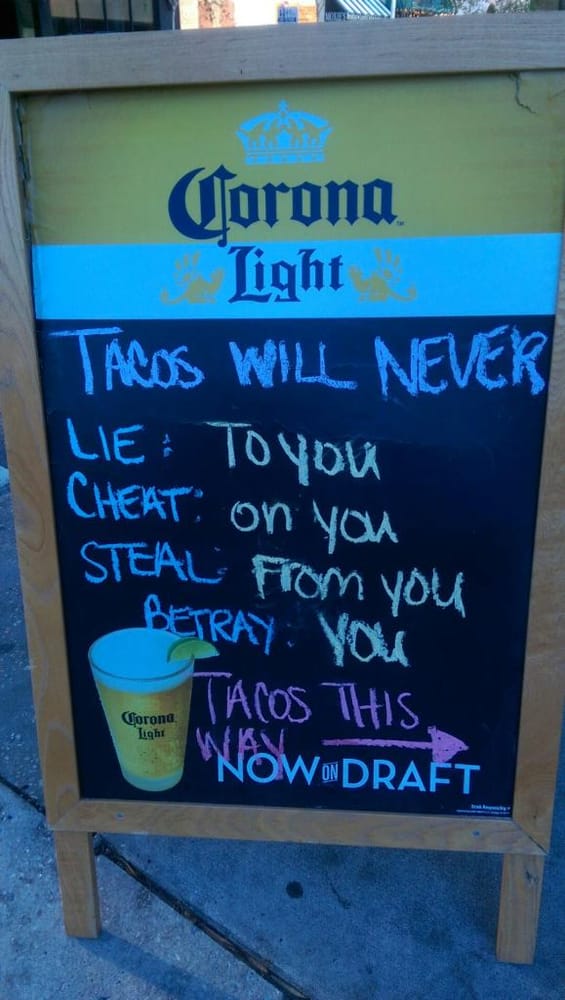 Corona
Light
TACOS WILL NEVER
LIE: To you
CHEAT: on you
STEAL: From you
BETRAY: You
TACOS THIS
WAY
Corona
Light
NOW ON DRAFT